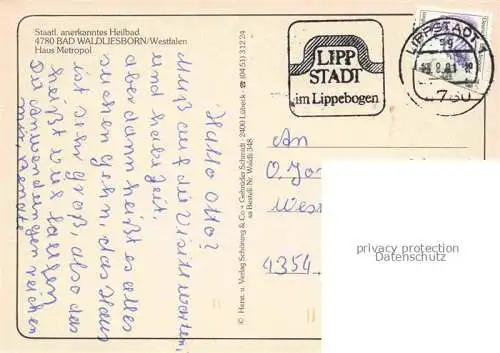 Staatl. anerkanntes Heilbad
4780 BAD WALDLIESBORN/Westfalen
Haus Metropol
Hallo Otto!
Muß auf die Visite warten,
und habe Zeit,
aber dann heißt es alles
suchen gehn, das Haus
ist sehr groß, also das
heißt viel laufen
Die Anwendungen reichen
mir, Renate
© Herst. u. Verlag Schöning & Co + Gebrüder Schmidt · 2400 Lübeck · ☎ (04 51) 3 12 24
sa Bestell-Nr. Waldli 348
LIPP
STADT
im Lippebogen
LIPPSTADT 1
4780
An
O. Jo
Wes
4354
privacy protection
Datenschutz